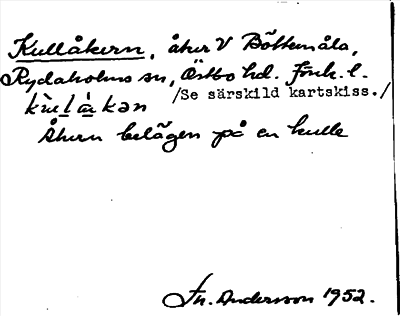 Kullåkern, åker V Böttemåla,
Rydaholms sn, Östbo hd. Jönk. l.
/Se särskild kartskiss./
Åkern belägen på en kulle
Fr. Andersson 1952.